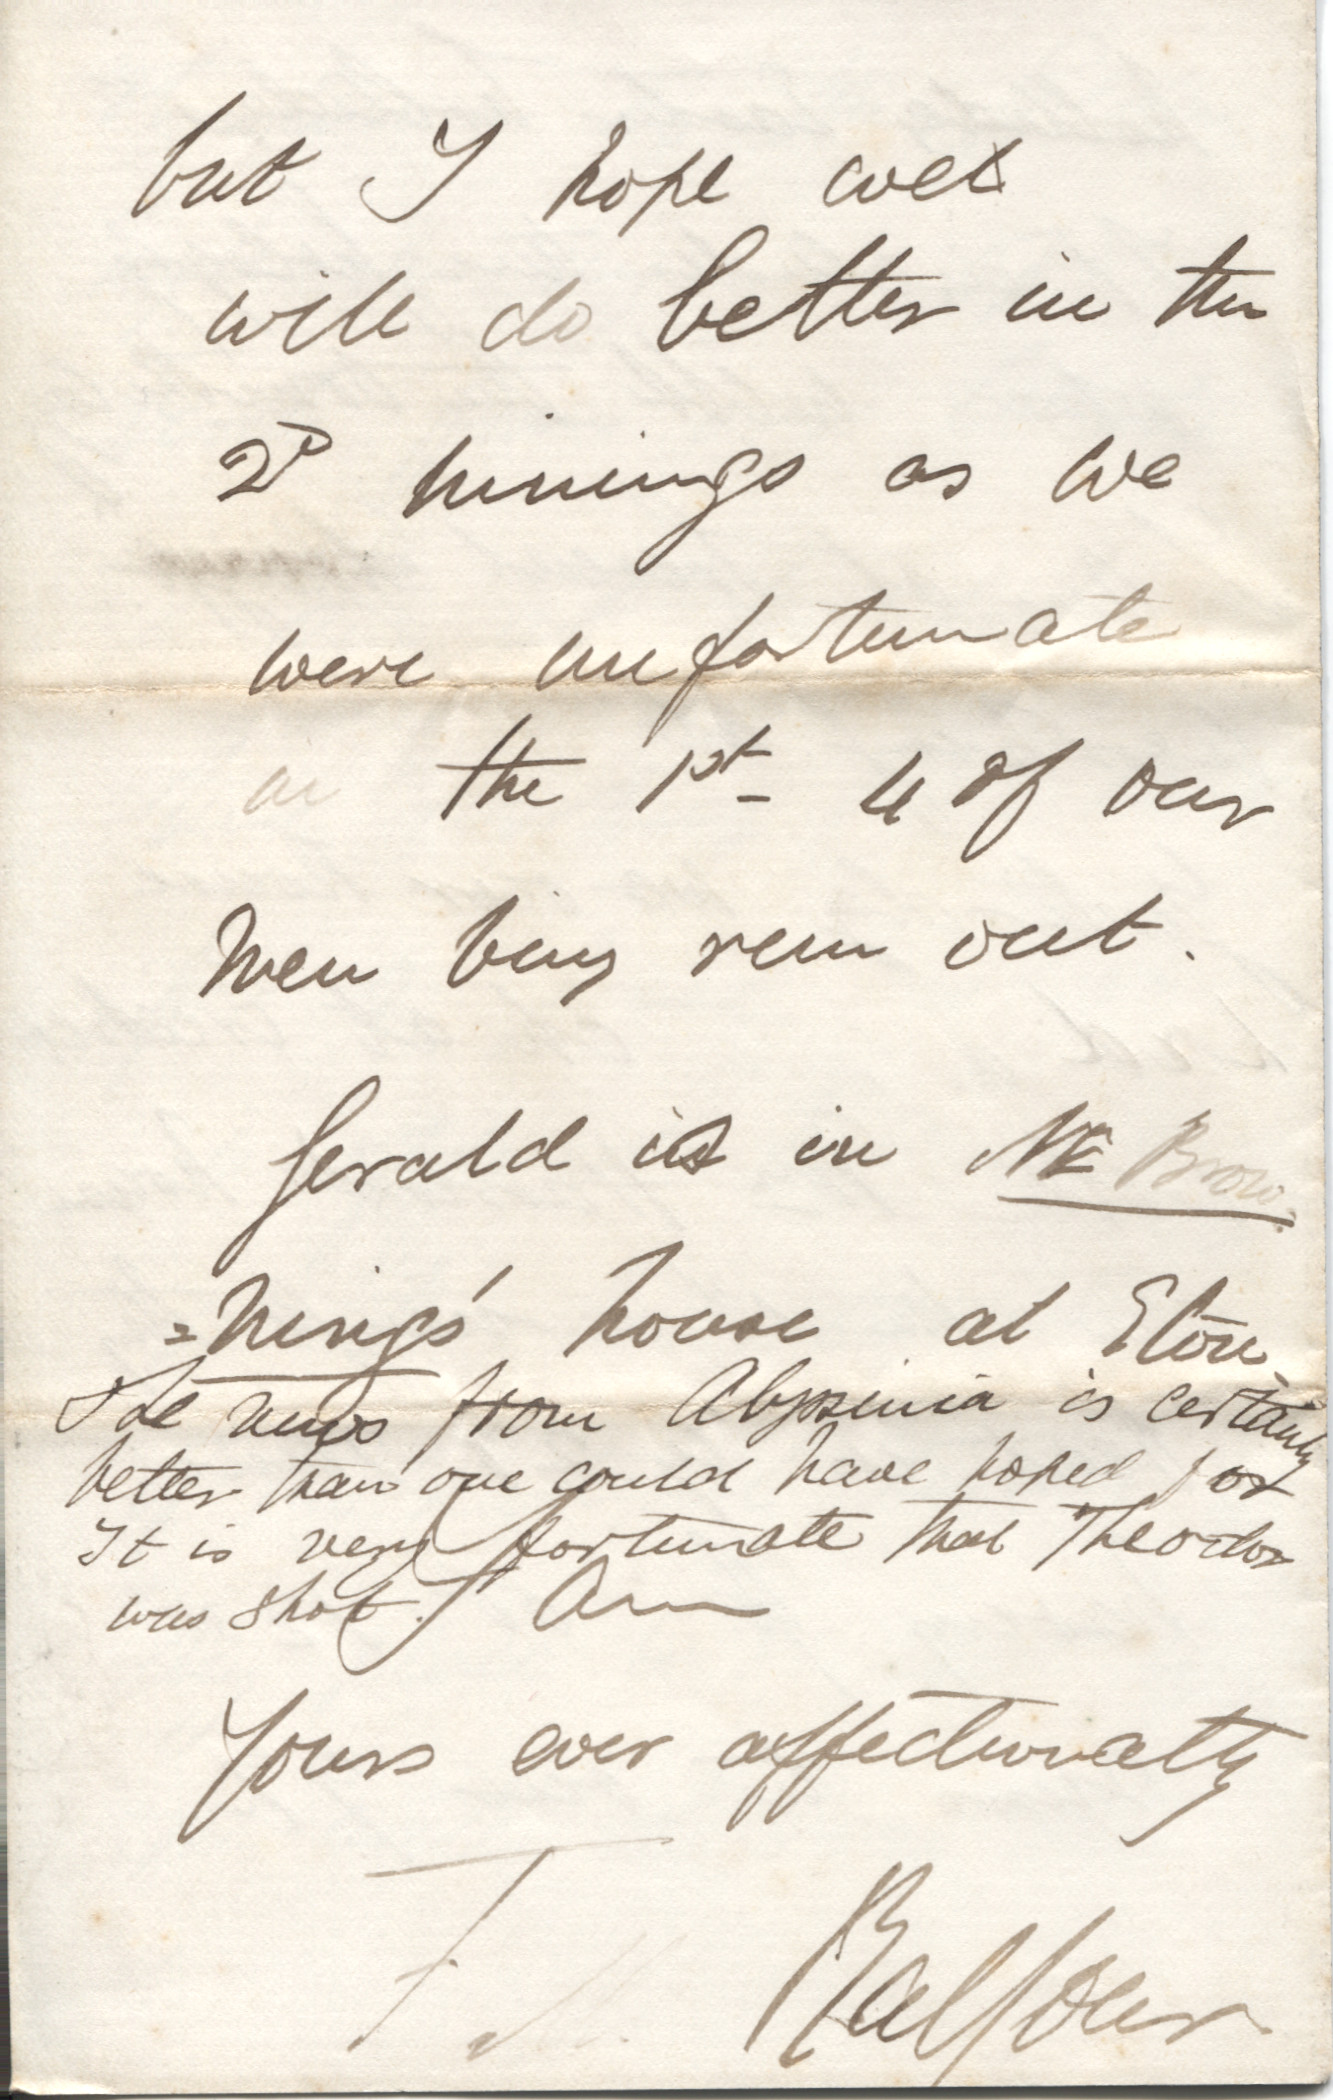 but I hope we
will do better in the
2D innings as we
were unfortunate
in the 1st 4 of our
men being run out.
Gerald is in Mr Brow
=ning's house at Eton
The news from Abyssinia is certainly
better than one could have hoped for
It is very fortunate that Theodor
was shot. I Am
Yours ever affectionately
F M Balfour